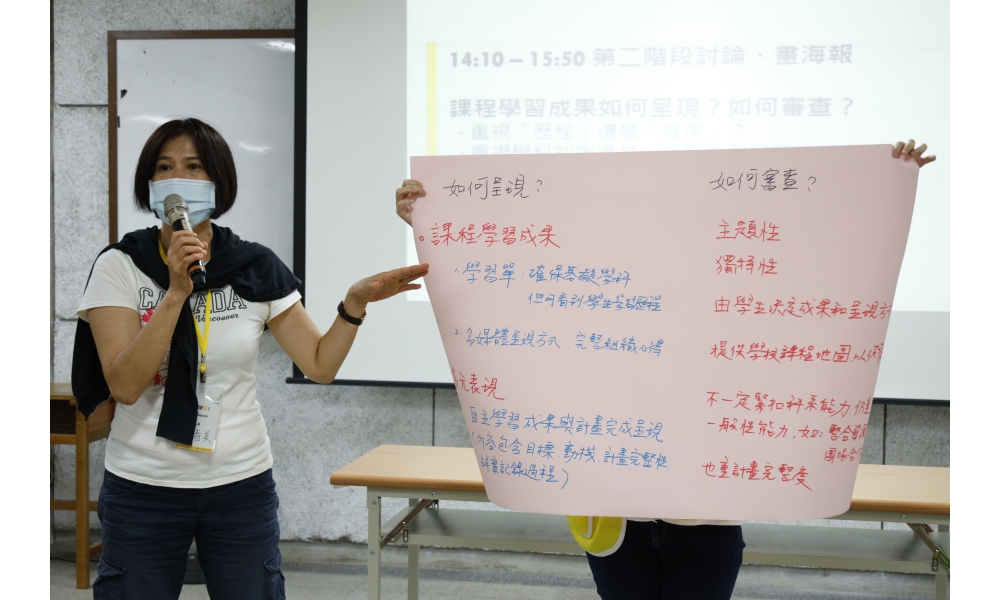 14:10 – 15:50 第二階段討論、畫海報
課程學習成果如何呈現？如何審查？
·重視「歷程」還是「成果」？
CANADA
Vancouver
如何呈現？
課程學習成果
1. 學習單：確保基礎學科
但可看到學生學習歷程
2. 多媒體呈現方式，完整組織心得
元表現
自主學習成果與計畫完成呈現
(內容包含目標、動機、計畫完整性
詳實記錄過程)
如何審查？
主題性
獨特性
由學生決定成果和呈現方
提供學校課程地圖，以供
不一定緊扣科系能力，但
一般性能力，如：整合
團隊合
也重計畫完整度